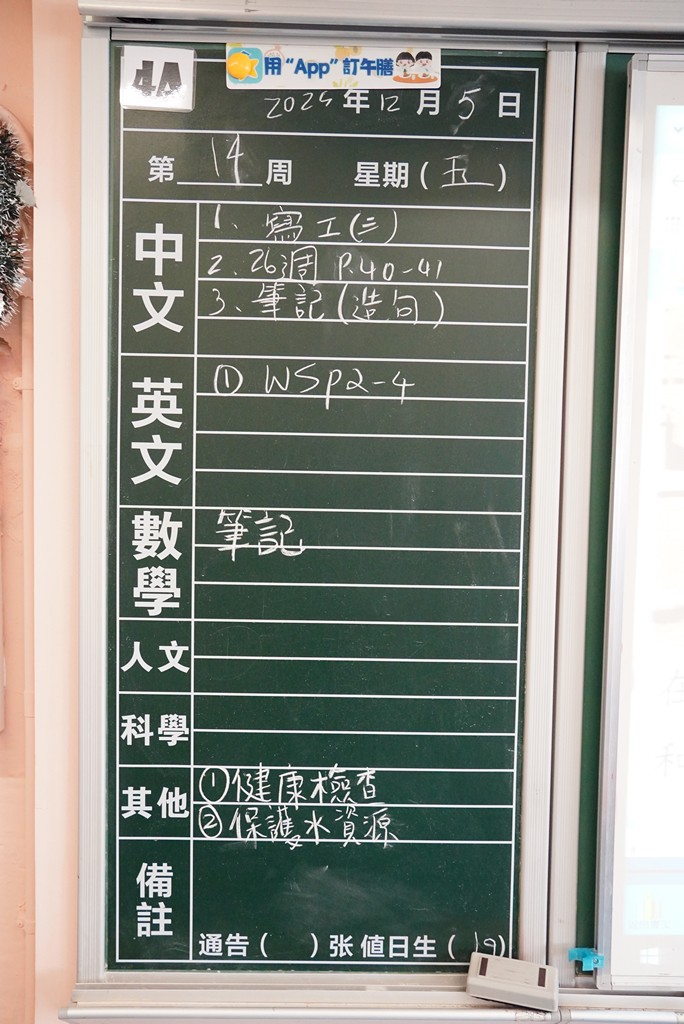 用“App”訂午膳
4A
2025年12月5日
第14周 星期(五)
中文
1. 寫工(三)
2. 26週 P.40-41
3. 筆記(造句)
英文
① WSp2-4
數學
筆記
人文
科學
其他
①健康檢查
②保護水資源
備註
通告( )张 值日生(19)